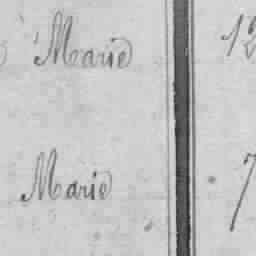 Marie 12
Marie 7